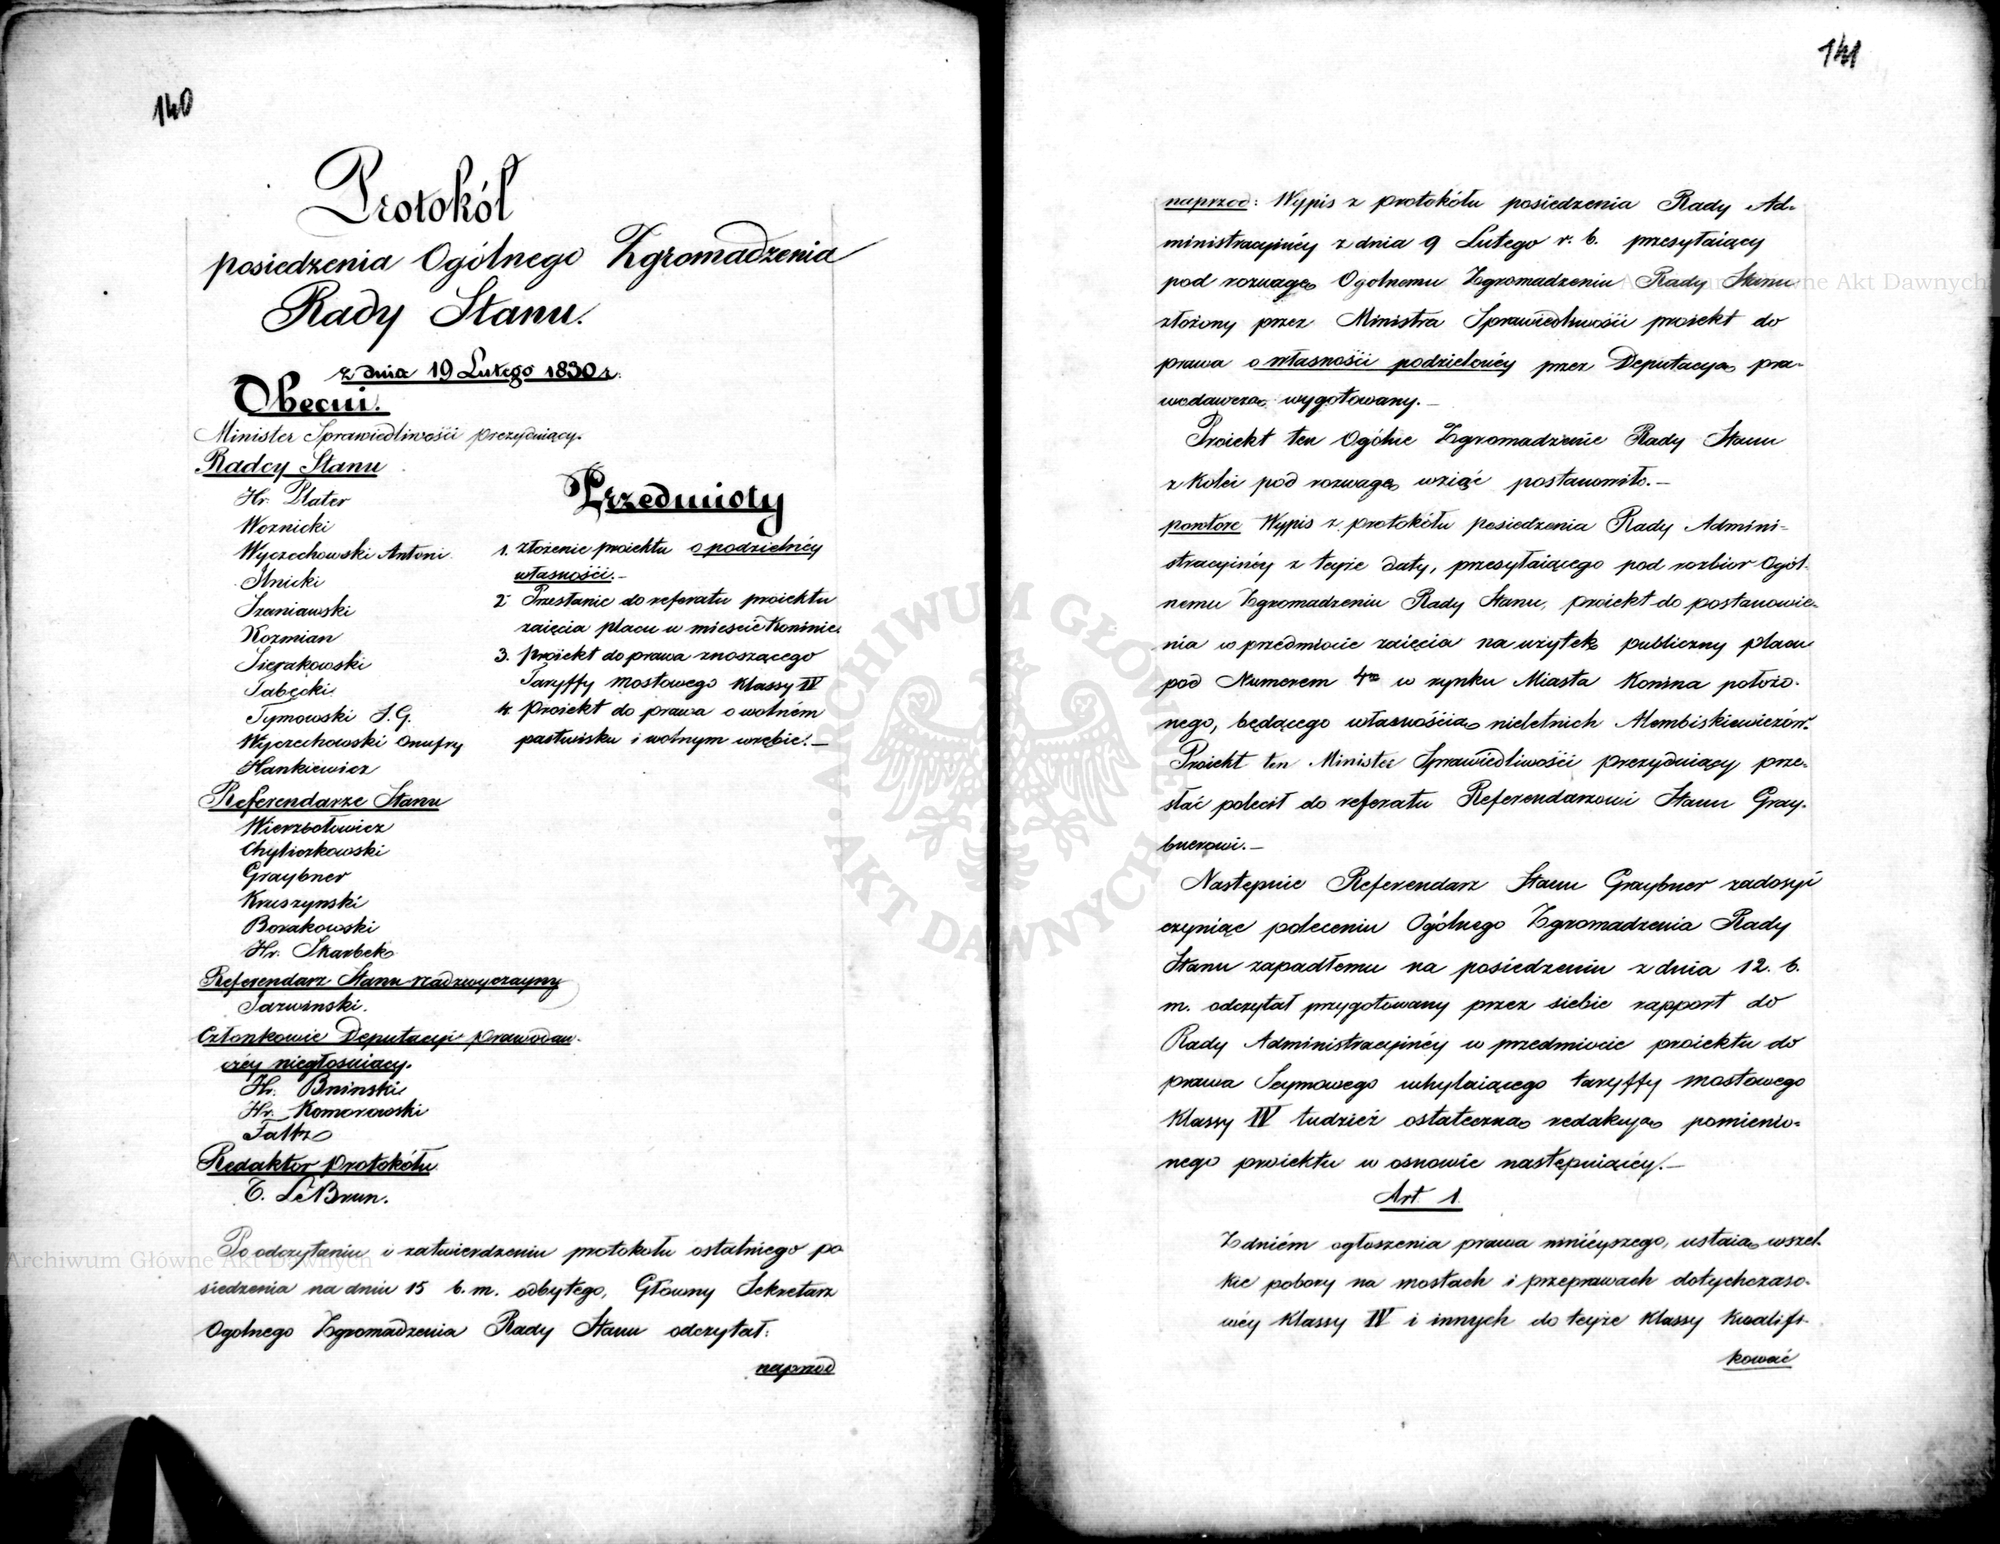 140
Protokół
posiedzenia Ogólnego Zgromadzenia
Rady Stanu.
z dnia 19 Lutego 1830 r.
Obecni.
Minister Sprawiedliwości prezyduiący.
Radcy Stanu
Hr. Plater
Woznicki
Wyczechowski Antoni
Szaniawski
Kozmian
Sierakowski
Tabęcki
Tymowski J. G.
Wyczechowski Onufry
Hankiewicz
Referendarze Stanu
Wierzbołowicz
Chyliczkowski
Graybner
Kruszynski
Borakowski
Hr. Skarbek
Referendarz Stanu nadzwyczayny
Jarwinski.
Członkowie Deputacyi prawodaw-
czéy niegłosuiący.
Hr. Bninski
Hr. Komorowski
Faltz
Redaktor protokółu
T. Le Brun.
Przedmioty
1. złożenie proiektu o podzielnéy
własności.—
2 Przesłanie do referatu proiektu
zaięcia placu w mieście Koninie.
3. Proiekt do prawa znoszącego
Taryffy mostowego klassy IV
4. Proiekt do prawa o wolném
pastwisku i wolnym wrębie.—
Po odczytaniu i zatwierdzeniu protokołu ostatniego po
siedzenia na dniu 15 b. m. odbytego, Główny Sekretarz
Ogolnego Zgromadzenia Rady Stanu odczytał:
naprzod
141
naprzod: Wypis z protokółu posiedzenia Rady Ad-
ministracyinéy z dnia 9 Lutego r. b. przesyłaiący
pod rozwagę Ogolnemu Zgromadzeniu Rady Stanu
złożony przez Ministra Sprawiedliwości proiekt do
prawa o własności podzielonéy przez Deputacyą pra-
wodawczą wygotowany.—
Proiekt ten Ogólne Zgromadzenie Rady Stanu
z kolei pod rozwagę wziąć postanowiło.—
powtóre Wypis z protokółu posiedzenia Rady Admini-
stracyinéy z teyże daty, przesyłaiącego pod rozbior Ogól-
nemu Zgromadzeniu Rady Stanu, proiekt do postanowie-
nia w przedmiocie zaięcia na użytek publiczny placu
pod Numerem 4m w rynku Miasta Konina położo-
nego, będącego własnością nieletnich Alembiskiewiczów.
Proiekt ten Minister Sprawiedliwości prezyduiący prze-
słać polecił do referatu Referendarzowi Stanu Gray-
bnerowi.—
Następnie Referendarz Stanu Graybner zadosyć
czyniąc poleceniu Ogólnego Zgromadzenia Rady
Stanu zapadłemu na posiedzeniu z dnia 12. b.
m. odczytał przygotowany przez siebie rapport do
Rady Administracyinéy w przedmiocie proiektu do
prawa Seymowego uchylaiącego taryffy mostowego
Klassy IV tudzież ostateczną redakcyą pomienio-
nego proiektu w osnowie następuiącéy.—
Art. 1.
Z dniém ogłoszenia prawa ninieyszego, ustaią wszel-
kie pobory na mostach i przeprawach dotychczaso-
wéy klassy IV i innych do teyże klassy kwalifi-
kować
Archiwum Główne Akt Dawnych
Archiwum Główne Akt Dawnych
ARCHIWUM GŁÓWNE AKT DAWNYCH